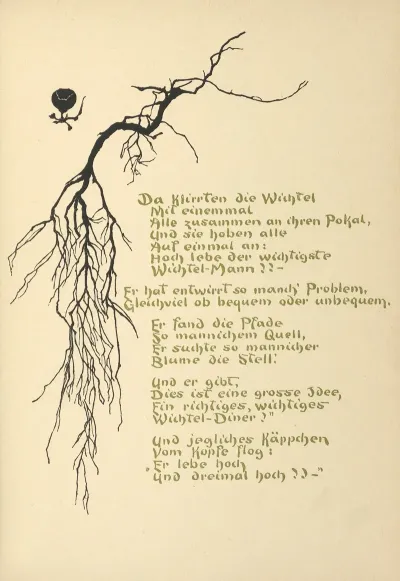 Da klirrten die Wichtel
Mit einemmal
Alle zusammen an ihren Pokal,
Und sie hoben alle
Auf einmal an:
Hoch lebe der wichtigste
Wichtel-Mann??-
Er hat entwirrt so manch' Problem,
Gleichviel ob bequem oder unbequem.
Er fand die Pfade
So mannichem Quell,
Er suchte so mannicher
Blume die Stell!
Und er gibt,
Dies ist eine grosse Idee,
Ein richtiges, wichtiges
Wichtel-Diner?"
Und jegliches Käppchen
Vom Kopfe flog:
"Er lebe hoch
Und dreimal hoch??-"